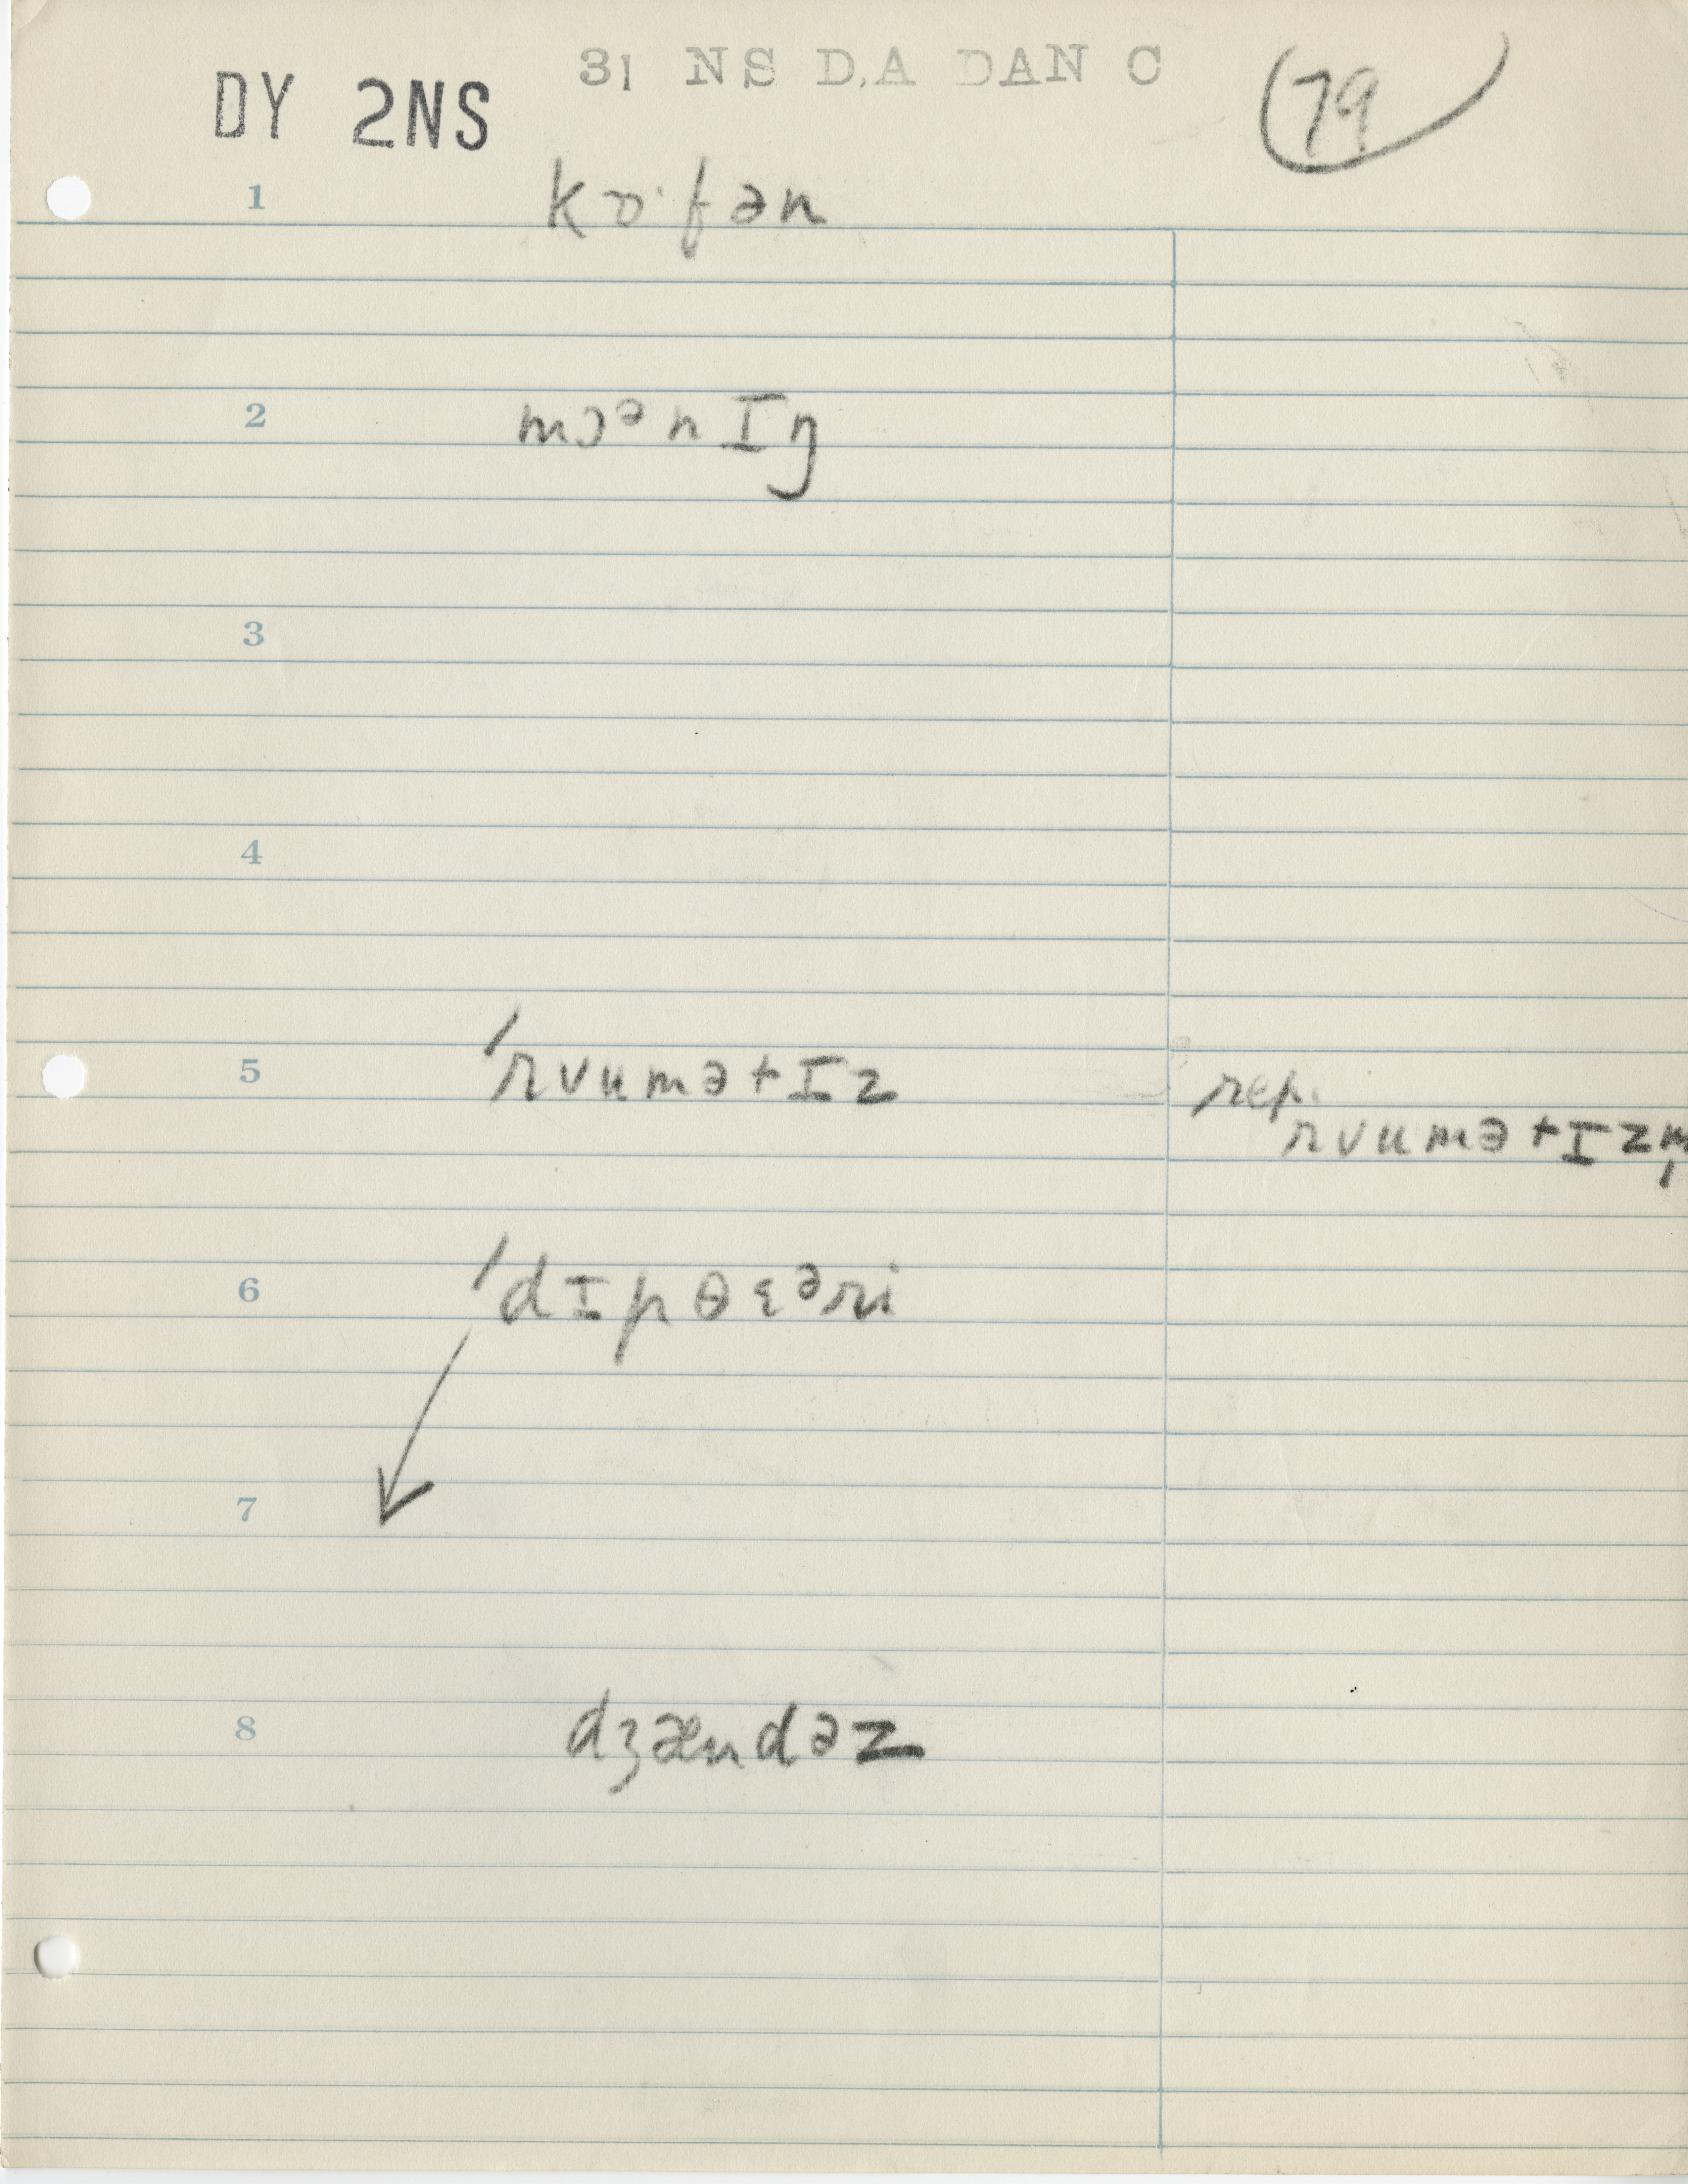 31 NS D.A DAN C
DY 2NS
79
1 kɒ·fən
2 mɔᵊnIŋ
3
4
5 /rvumətIz
rep.
rvumətIzm̩
6 /dIpθɛᵊri
7
8 dʒændəz